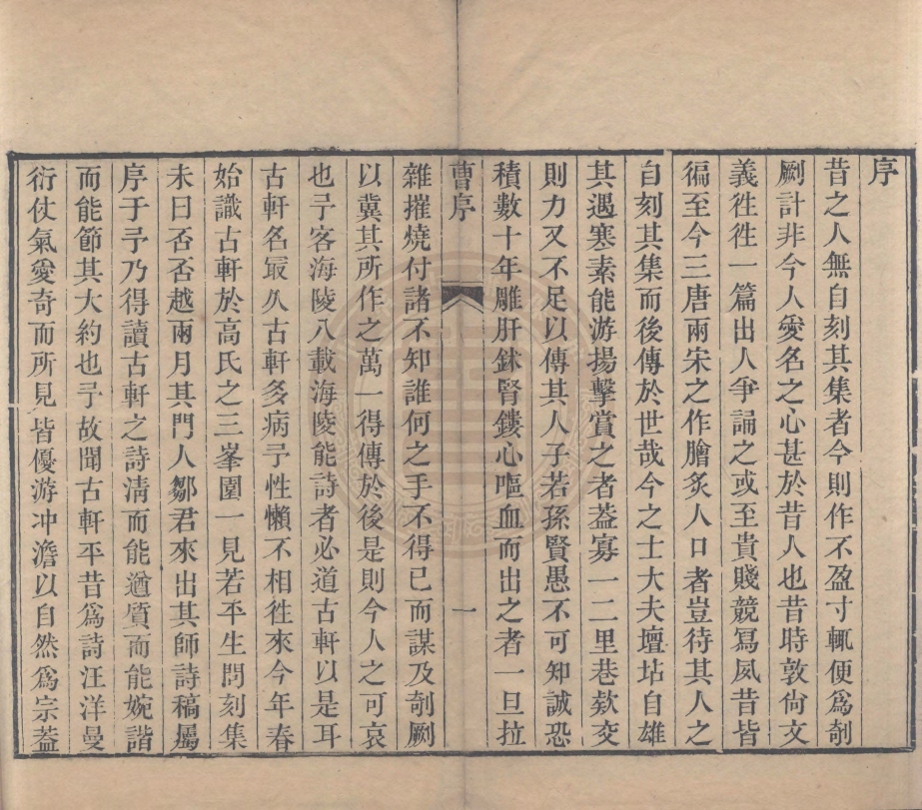 序
昔之人無自刻其集者今則作不盈寸輒便爲剞
劂計非今人愛名之心甚於昔人也昔時敦尙文
義徃徃一篇出人爭誦之或至貴賤競寫夙昔皆
徧至今三唐兩宋之作膾炙人口者豈待其人之
自刻其集而後傳於世哉今之士大夫壇坫自雄
其遇寒素能游揚擊賞之者葢寡一二里巷欵交
則力又不足以傳其人子若孫賢愚不可知誠恐
積數十年雕肝鉥腎鏤心嘔血而出之者一旦拉
曹序
一
雜摧燒付諸不知誰何之手不得已而謀及剞劂
以冀其所作之萬一得傳於後是則今人之可哀
也予客海陵八載海陵能詩者必道古軒以是耳
古軒名最久古軒多病予性懶不相徃來今年春
始識古軒於高氏之三峯園一見若平生問刻集
未曰否否越兩月其門人鄒君來出其師詩稿屬
序于予乃得讀古軒之詩淸而能遒質而能婉諧
而能節其大約也予故聞古軒平昔爲詩汪洋曼
衍仗氣愛奇而所見皆優游冲澹以自然爲宗葢